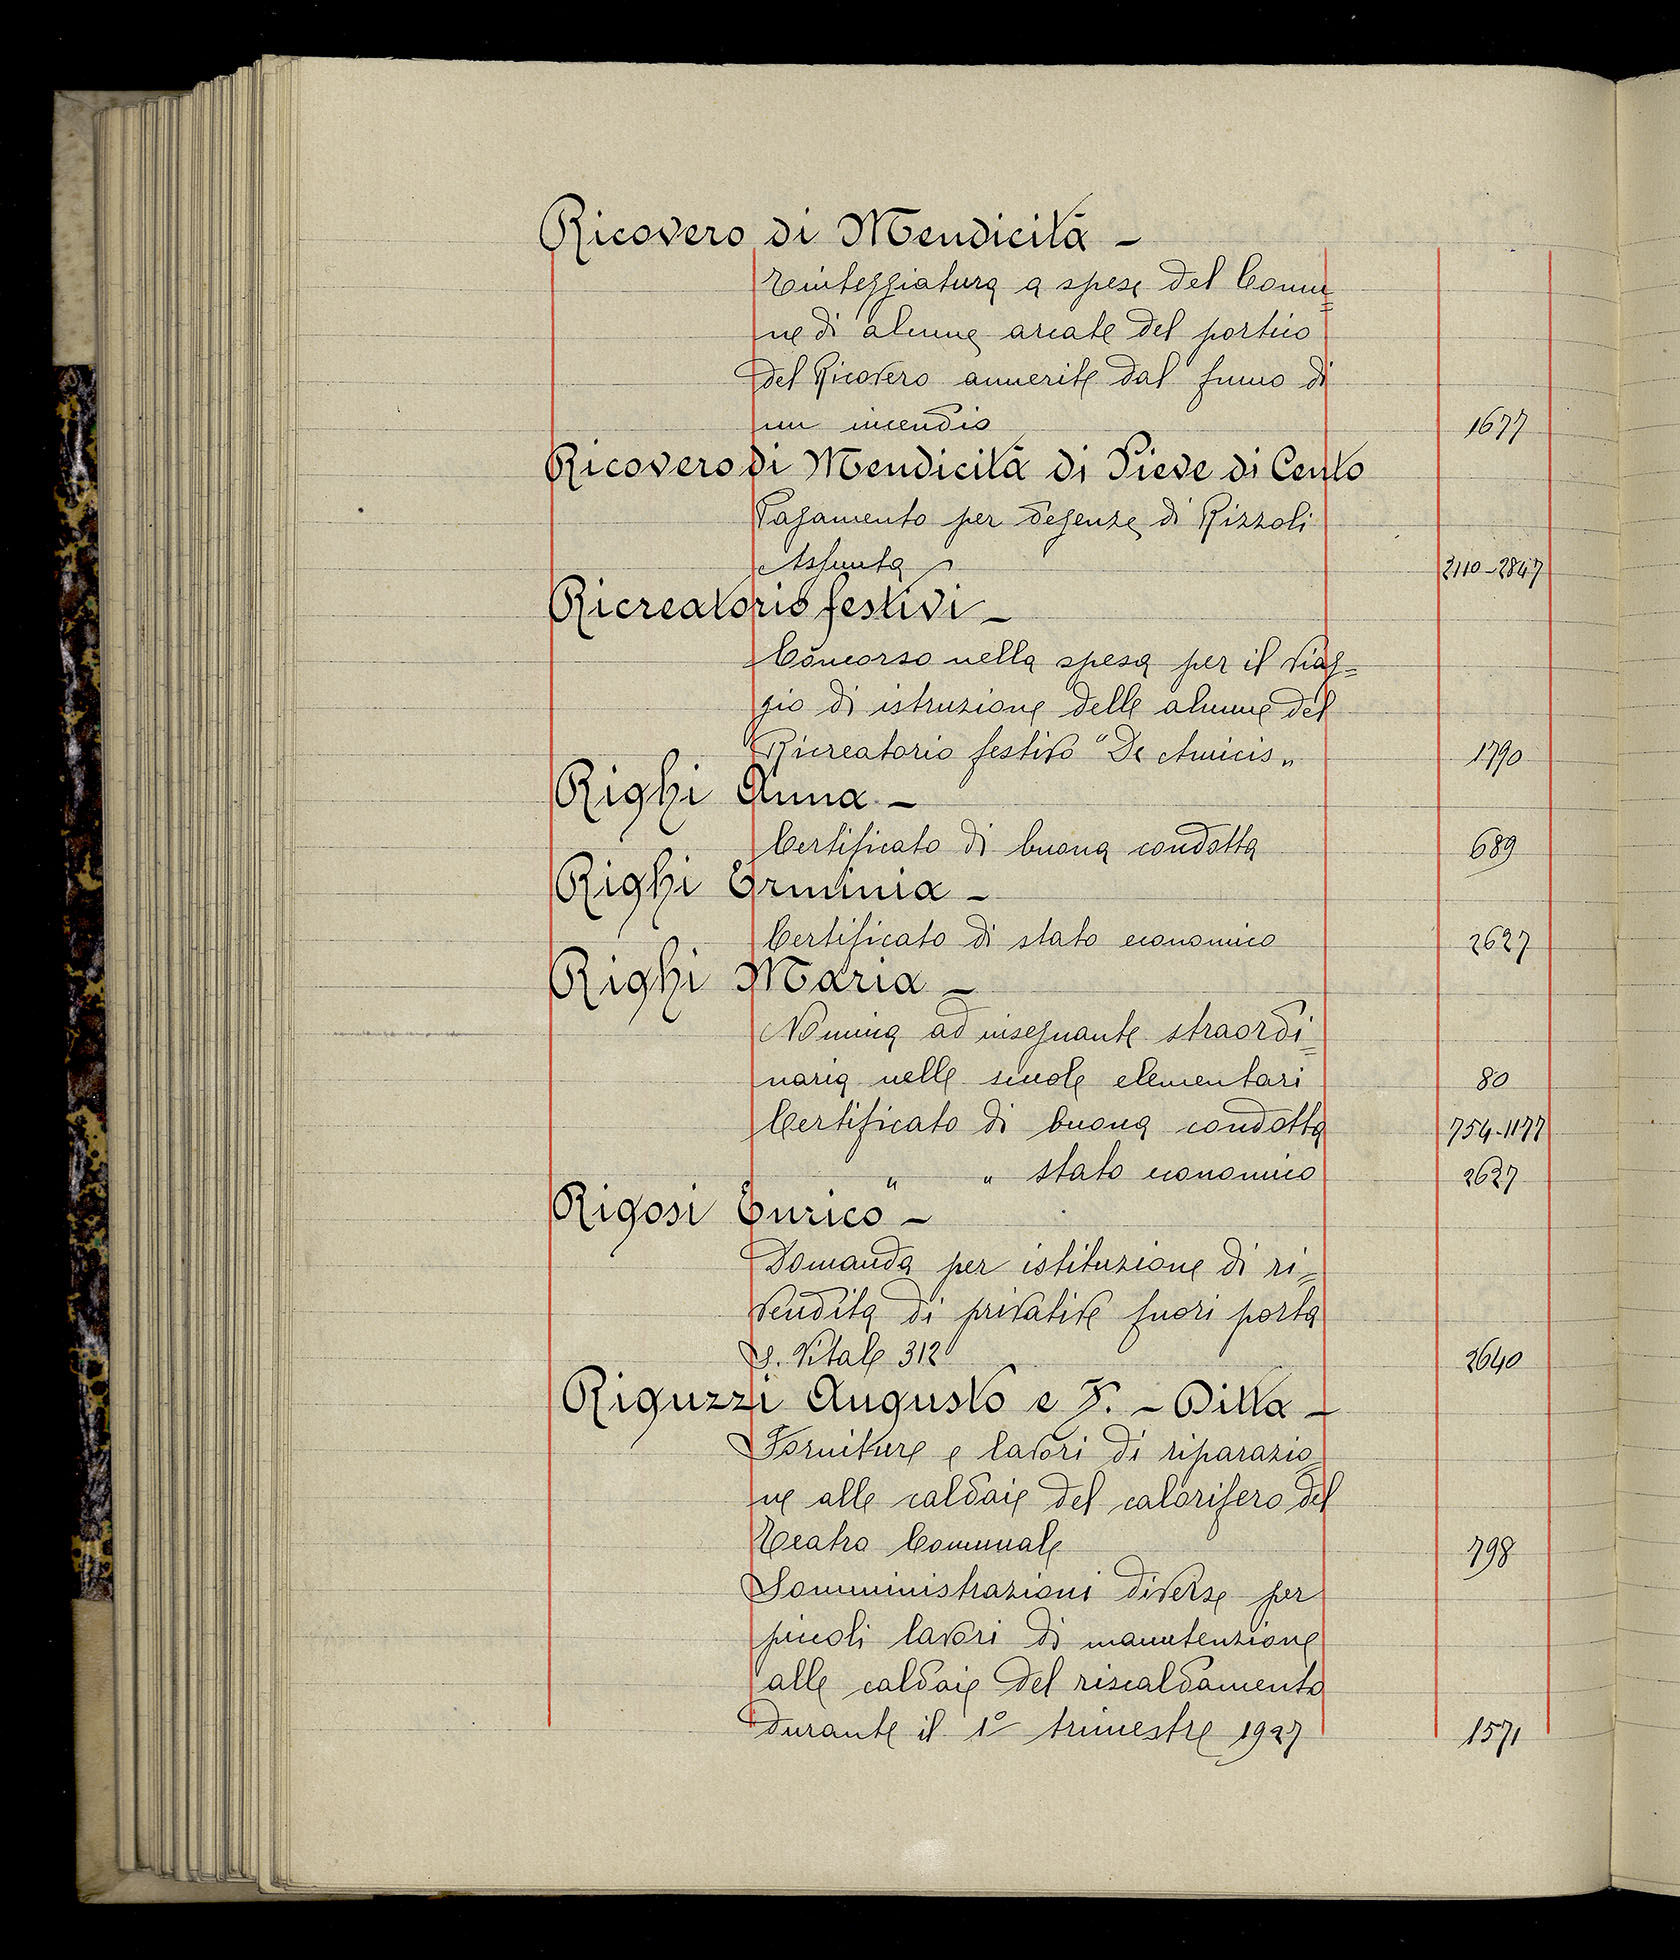 Ricovero di Mendicità –
Tinteggiatura a spese del Comu=
ne di alcune arcate del portico
del Ricovero annerite dal fumo di
un incendio 1677
Ricovero di Mendicità di Pieve di Cento
Pagamento per degenze di Rizzoli
Assunta 2110-2847
Ricreatorio festivi –
Concorso nella spesa per il viag=
gio di istruzione delle alunne del
Ricreatorio festivo "De Amicis" 1790
Righi Anna –
Certificato di buona condotta 689
Righi Erminia –
Certificato di stato economico 2627
Righi Maria –
Nomina ad insegnante straordi=
naria nelle scuole elementari 80
Certificato di buona condotta 754-1177
" " stato economico 2627
Rigosi Enrico –
Domanda per istituzione di ri=
vendita di privative fuori porta
S. Vitale 312 2640
Riguzzi Augusto e F. – Ditta –
Forniture e lavori di riparazio=
ne alle caldaie del calorifero del
Teatro Comunale 798
Somministrazioni diverse per
piccoli lavori di manutenzione
alle caldaie del riscaldamento
durante il 1º trimestre 1927 1571